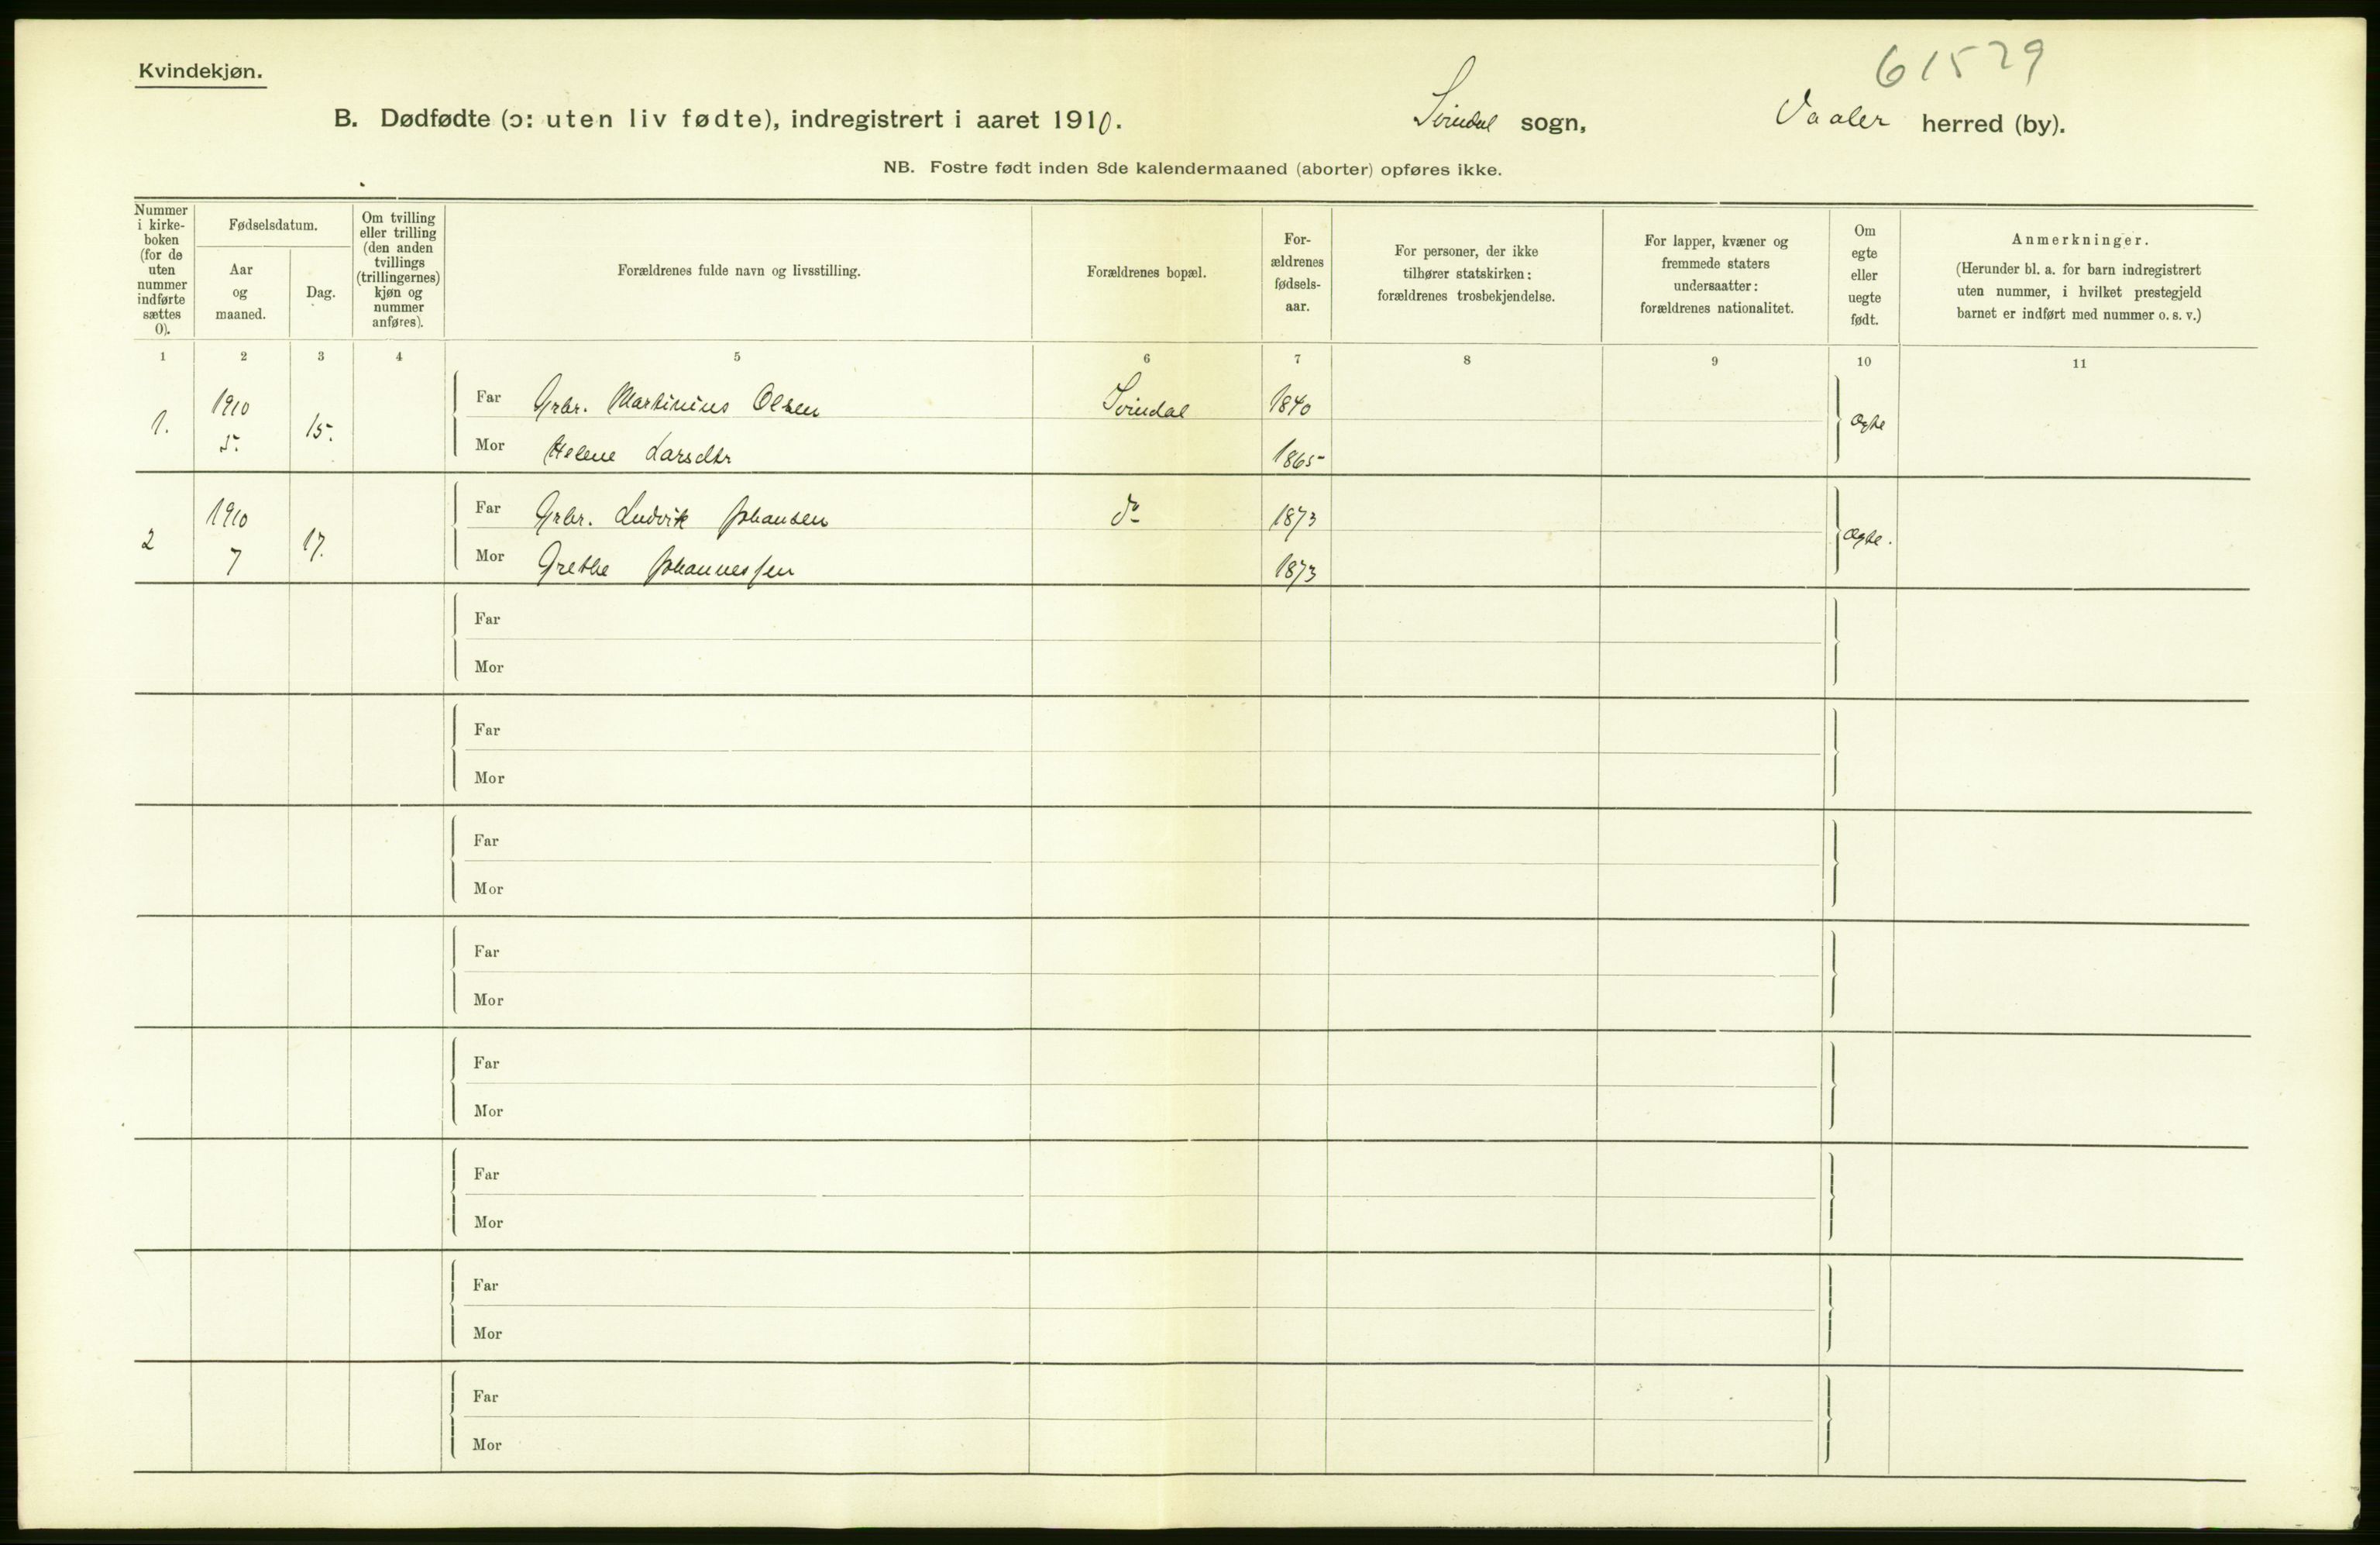 61529
Kvindekjøn.
B. Dødfødte (ɔ: uten liv fødte), indregistrert i aaret 1910. Svindal sogn, Vaaler herred (by).
NB. Fostre født inden 8de kalendermaaned (aborter) opføres ikke.
Nummer
i kirke-
boken
(for de
uten
nummer
indførte
sættes
0).
Fødselsdatum.
Aar
og
maaned.
Dag.
Om tvilling
eller trilling
(den anden
tvillings
(trillingernes)
kjøn og
nummer
anføres).
Forældrenes fulde navn og livsstilling.
Forældrenes bopæl.
For-
ældrenes
fødsels-
aar.
For personer, der ikke
tilhører statskirken:
forældrenes trosbekjendelse.
For lapper, kvæner og
fremmede staters
undersaatter:
forældrenes nationalitet.
Om
egte
eller
uegte
født.
Anmerkninger.
(Herunder bl. a. for barn indregistrert
uten nummer, i hvilket prestegjeld
barnet er indført med nummer o. s. v.)
1 2 3 4 5 6 7 8 9 10 11
1. 1910 5. 15.
Far Grbr. Martinius Olsen Svindal 1840
Mor Helene Larsdtr 1865
Ægte
2 1910 7 17.
Far Grbr. Ludvik Johansen do 1873
Mor Grethe Johannessen 1873
Ægte.
Far
Mor
Far
Mor
Far
Mor
Far
Mor
Far
Mor
Far
Mor
Far
Mor
Far
Mor